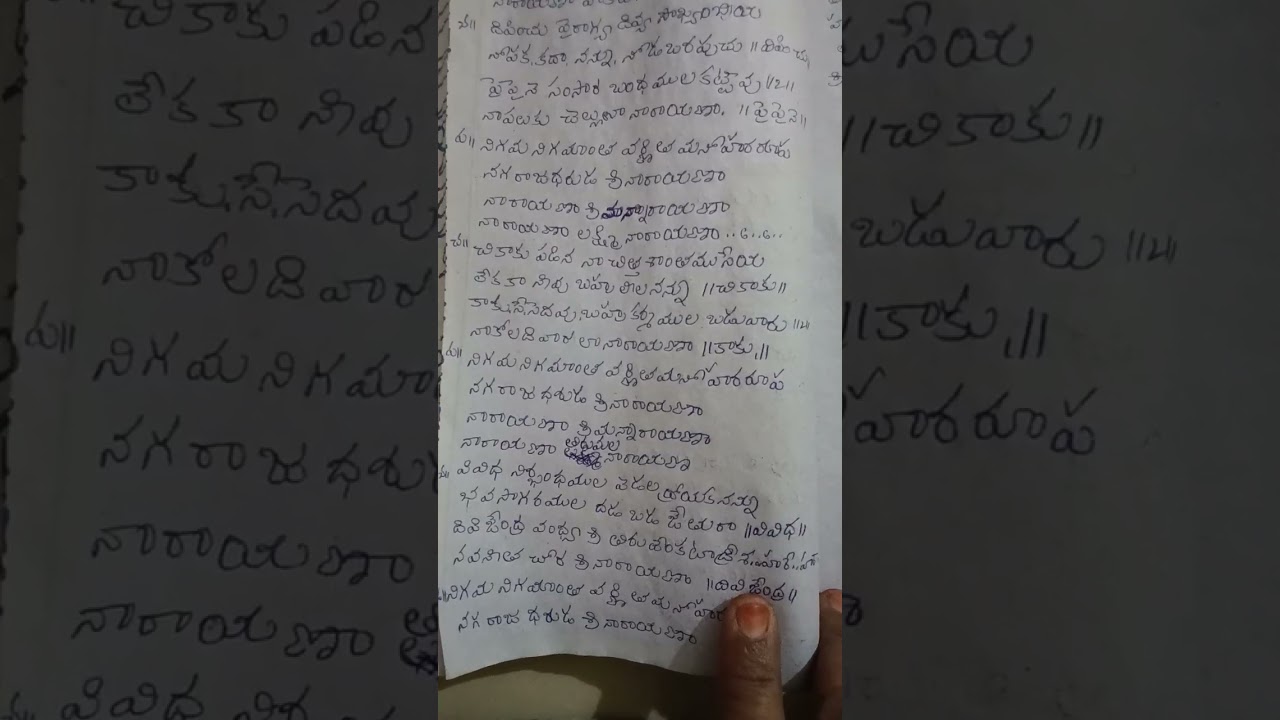 చ॥ దీపించు వైరాగ్య దివ్య సౌఖ్యంబియ్య
నోపక కదా నన్ను నోడబరపుచు ॥దీపించు
పైపైనె సంసార బంధముల కట్టేవు ॥2॥
నాపలుకు చెల్లునా నారాయణా. ॥పైపైనె॥
ప॥ నిగమ నిగమాంత వర్ణిత మనోహరరూప
నగరాజధరుడ శ్రీనారాయణా
నారాయణా శ్రీమన్నారాయణా
నారాయణా లక్ష్మీ నారాయణా ..
చ॥ చికాకు పడిన నా చిత్త శాంతముసేయ
లేకకా నీవు బహులీల నన్ను ॥చికాకు॥
కాకు సేసెదవు బహుకర్మముల బడువారు ॥2॥
నాకోలదివారలా నారాయణా ॥కాకు॥
ప॥ నిగమ నిగమాంత వర్ణిత మనోహరరూప
నగరాజ ధరుడ శ్రీనారాయణా
నారాయణా శ్రీమన్నారాయణా
నారాయణా తిరుమల నారాయణ
చ॥ వివిధ నిర్బంధముల వెడలద్రోయక నన్ను
భవసాగరముల దడ బడ జేతురా ॥వివిధ॥
దివిజేంద్ర వంద్య శ్రీ తిరువేంకటాద్రీశ హరే..
నవనీత చోర శ్రీనారాయణా ॥దివిజేంద్ర॥
నిగమ నిగమాంత వర్ణిత మనోహర
నగరాజ ధరుడ శ్రీనారాయణా